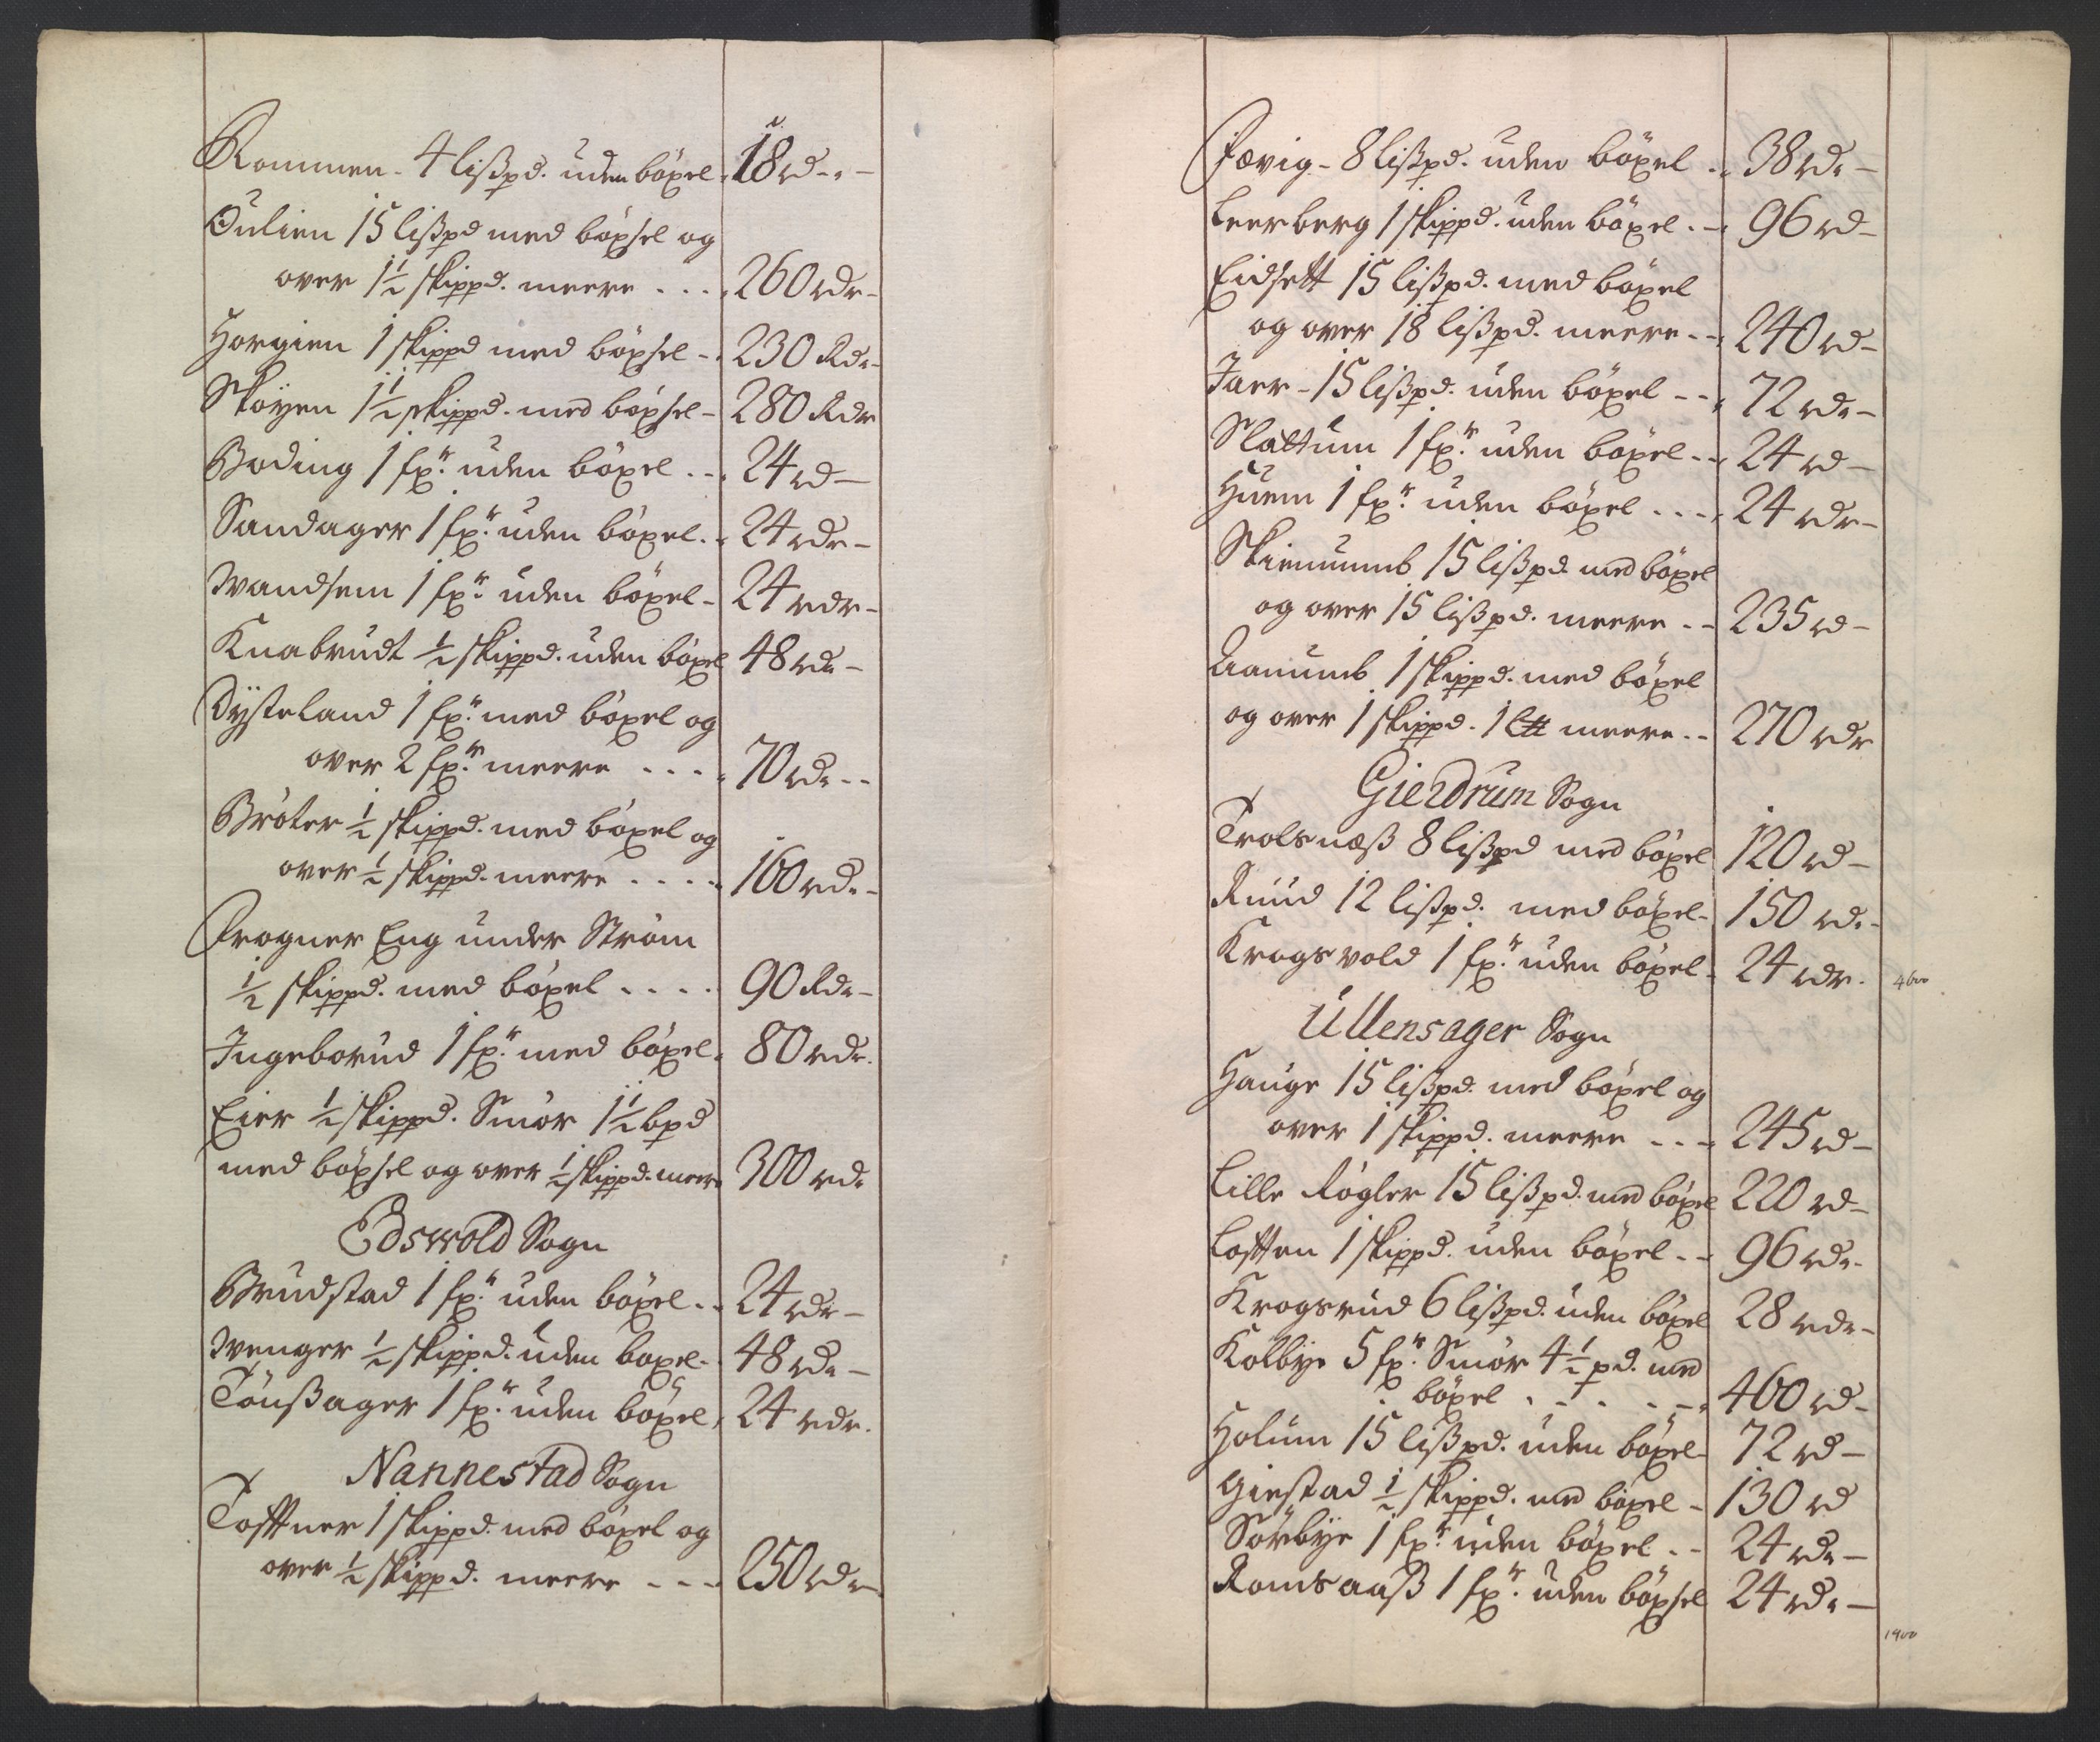 Rommen - 4 lißpd. uden böxel 18 rd -
Oulien 15 lißpd med böxsel og
over 1½ skippd. meere . . . 260 rdr -
Horgien 1 skippd med böxsel - 230 Rdr -
Sköyen 1½ skippd. med böxsel - 280 Rdr
Boding 1 fxr: uden böxel . . 24 rd -
Sandager 1 fxr: uden böxel . 24 rdr -
Wandsem 1 fxr: uden böxel - 24 rdr -
Knabrudt ½ skippd. uden böxel 48 rdr -
Dysteland 1 fxr: med böxel og
over 2 fxr: meere . . . . 70 rdr - -
Bröter ½ skippd. med böxel og
over ½ skippd. meere . . . . 160 rdr -
Frogner Eng under Ström
½ skippd. med böxel . . . . 90 Rdr -
Ingeborud 1 fxr: med böxel . 80 rdr.
Eier ½ skippd. Smör 1½ bpd
med böxsel og over ½ skippd. meere 300 rdr
Edswold Sogn
Brudstad 1 fxr: uden böxel . . 24 rdr -
Wenger ½ skippd. uden böxel - 48 rdr -
Tönßager 1 fxr: uden böxel, 24 rdr.
Nannestad Sogn
Tofftner 1 skippd. med böxel og
over ½ skippd. meere - - - 250 rdr -
Fævig - 8 lißpd. uden böxel . . 38 rdr -
Leerberg 1 skippd. uden böxel . - 96 rd -
Eidsett 15 lißpd. med böxel
og over 18 lißpd. meere - - 240 rd -
Jaer - 15 lißpd. uden böxel - - 72 rdr -
Slattum 1 fxr: uden böxel - - 24 rd -
Huem 1 fxr: uden böxel . . - - 24 rdr -
Skiennumb 15 lißpd. med böxel
og over 15 lißpd. meere - - 235 rd -
Aanumb 1 skippd. med böxel
og over 1 skippd. 1 L℔ meere . . 270 rdr
Gierdrum Sogn
Trolsnæß 8 lißpd med böxel 120 rd -
Ruud 12 lißpd. med böxel - 150 rdr -
Krogsvold 1 fxr: uden böxel - 24 rdr. 4600
Ullensager Sogn
Hauge 15 lißpd. med böxel og
over 1 skippd. meere - - - 245 rd -
Lille Rögler 15 lißpd. med böxel 220 rd -
Loften 1 skippd. uden böxel - - 96 rdr -
Krogsrud 6 lißpd. uden böxel 28 rdr -
Kolbye 5 fxr: Smör 4½ pd. med
böxel . - . . - - 460 rd -
Holum 15 lißpd. uden böxel - 72 rd -
Giestad ½ skippd. med böxel - 130 rd
Sörbye 1 fxr: uden böxel . - 24 rdr -
Romsaaß 1 fxr: uden böxsel 24 rdr -
1900